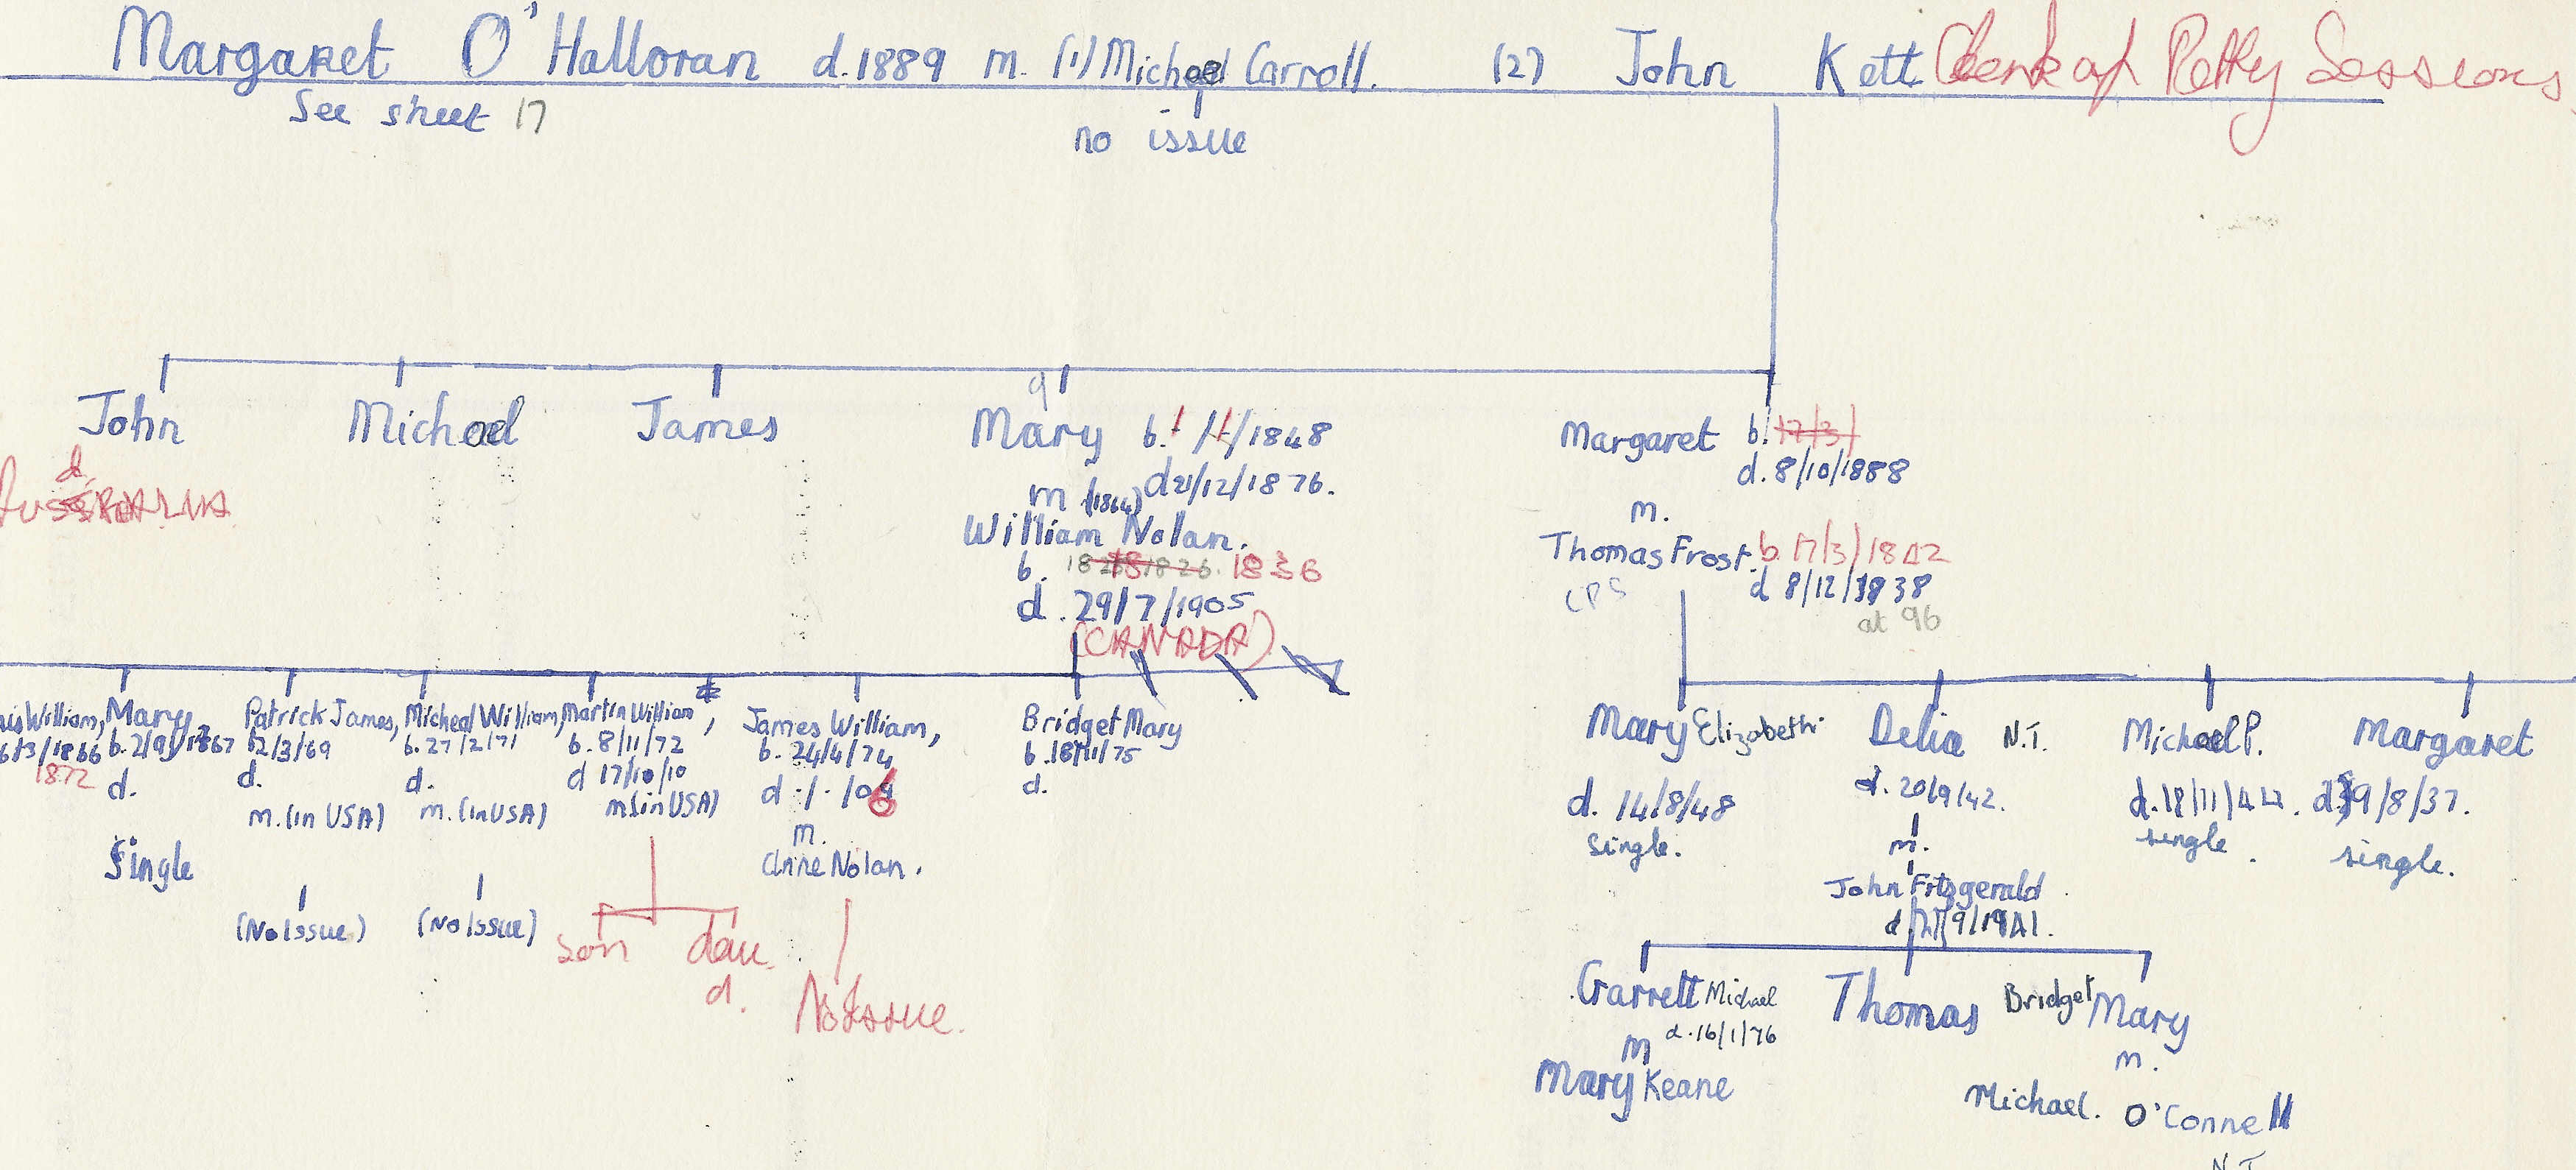 Margaret O'Halloran d.1889 m. (1) Michael Carroll. (2) John Kett Clerk of Petty Sessions
See sheet 17
no issue
John
d.
AUSTRALIA
Michael
James
Mary b. 1/11/1848
d 21/12/1876.
m (1864)
William Nolan.
b. 1836
d. 29/7/1905
(CANADA)
Margaret b. 17/3/
d. 8/10/1888
m.
Thomas Frost. b. 17/3/1842
CPS
d 8/12/1938
at 96
William,
6/3/1866
1872
Mary,
b. 2/9/1867
d.
Single
Patrick James,
b 2/3/69
d.
m. (in USA)
(No Issue)
Micheal William,
b. 27/2/71
d.
m. (in USA)
(No Issue)
Martin William,
b. 8/11/72
d 17/10/10
m (in USA)
son
dau
d.
James William,
b. 24/4/74
d. 1. /06
m.
Anne Nolan.
No Issue.
Bridget Mary
b. 18/11/75
d.
Mary Elizabeth
d. 14/8/48
Single.
Delia N.T.
d. 20/9/42.
m.
John Fitzgerald
d. 9/1941.
Michael P.
d. 18/11/42.
single.
Margaret
9/8/37.
single.
Garrett Michael
d. 16/1/76
m
Mary Keane
Thomas
Bridget Mary
m.
Michael. O'Connell
N.T.